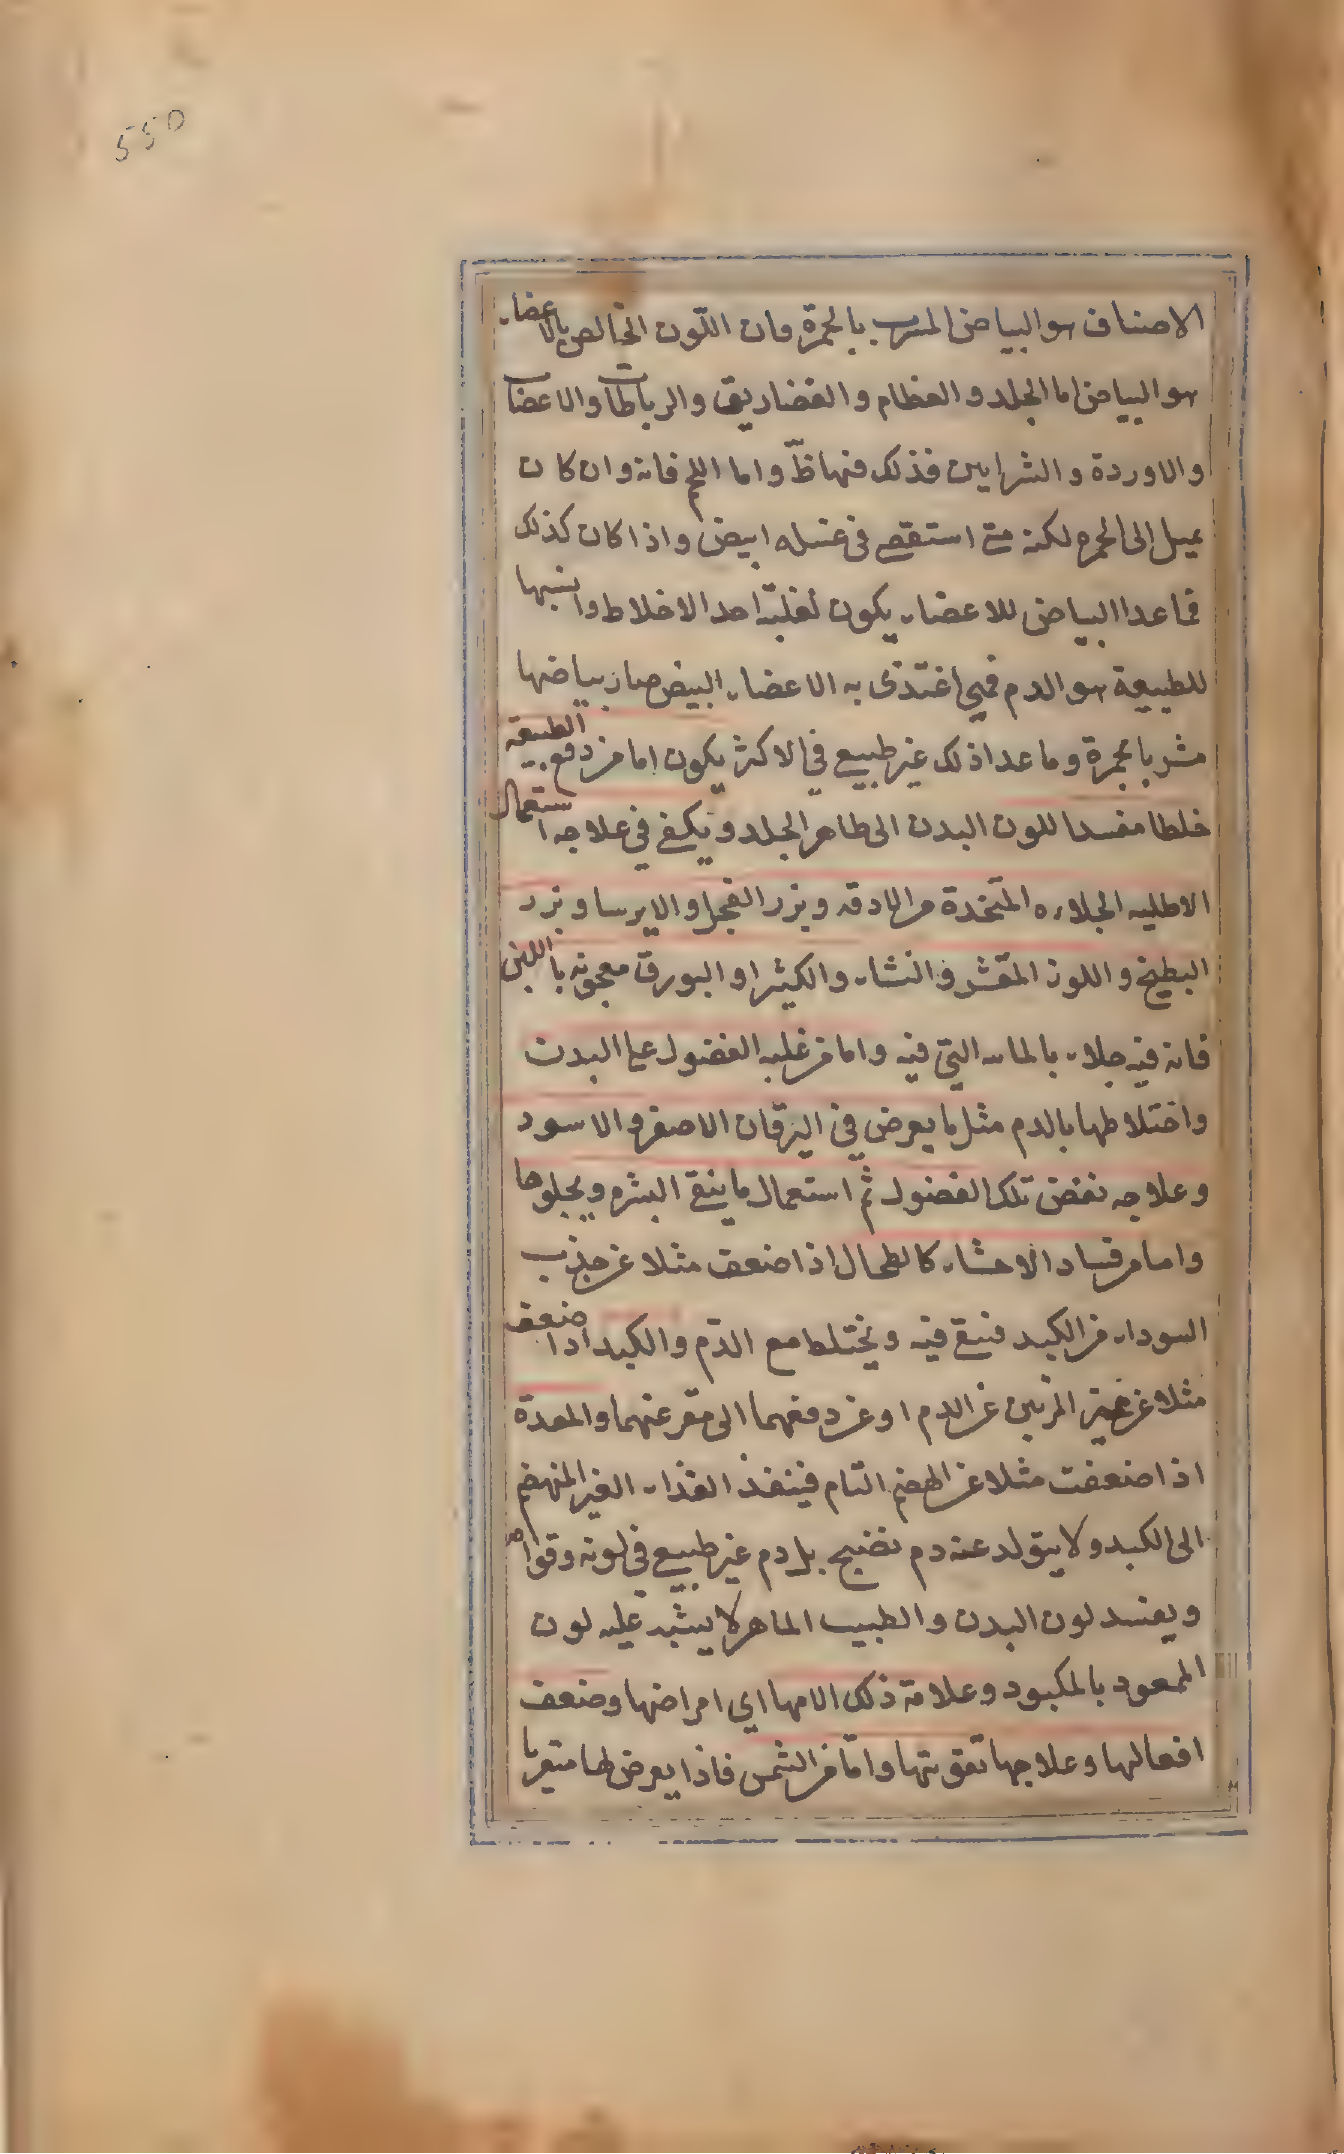 550
الاصناف هو البياض المشرب بالحمرة وان اللون الخالص بالاعضاء
هو البياض اما الجلد و العظام و الغضاريف والرباطات والاعصاب
والاوردة و الشرايين فذلك فيها ظ واما اللحم فانه وان كان
يميل الى الحمره لكنه متى استقصى فى غسله ابيض واذا كان كذلك
فماعدا البياض للاعضاء يكون لغلبة احد الاخلاط واشبهها
للطبيعة هو الدم فمتى اغتذى به الاعضاء البيض صار بياضها
مشربا بحمرة وما عدا ذلك غير طبيعى فى الاكثر يكون اما من دفع الطبيعة
خلطا مفسدا للون البدن الى ظاهر الجلد ويكفى فى علاجه استعمال
الاطليه الجلاءه المتخذة من الادقه وبزر الفجل والايرسا وبزر
البطيخ و اللوز المقشر والنشاء والكثيرا و البورق معجونه باللبن
فانه فيه جلاء بالمائيه التى فيه واما من غلبه الفضول على البدن
واختلاطها بالدم مثل ما يعرض فى اليرقان الاصفر والاسود
وعلاجه نفض تلك الفضول ثم استعمال ما ينقى البشره ويجلوها
واما من فساد الاحشاء كالطحال اذا ضعف مثلا عن جذب
السوداء من الكبد فتبقى فيه ويختلط مع الدم والكبد اذا ضعف
مثلا عن تمييز المرتين عن الدم او عن دفعهما الى مفرغتهما والمعدة
اذا ضعفت مثلا عن الهضم التام فينفذ الغذاء الغير المنهضم
الى الكبد ولا يتولد عنه دم نضيج بل دم غير طبيعى فى لونه وقوامه
ويفسد لون البدن والطبيب الماهر لا يشتبه عليه لون
الممعود بالمكبود وعلامة ذلك الامها اى امراضها وضعف
افعالها وعلاجها تقويتها واما من الشمس فاذا يعرض لها متعريا